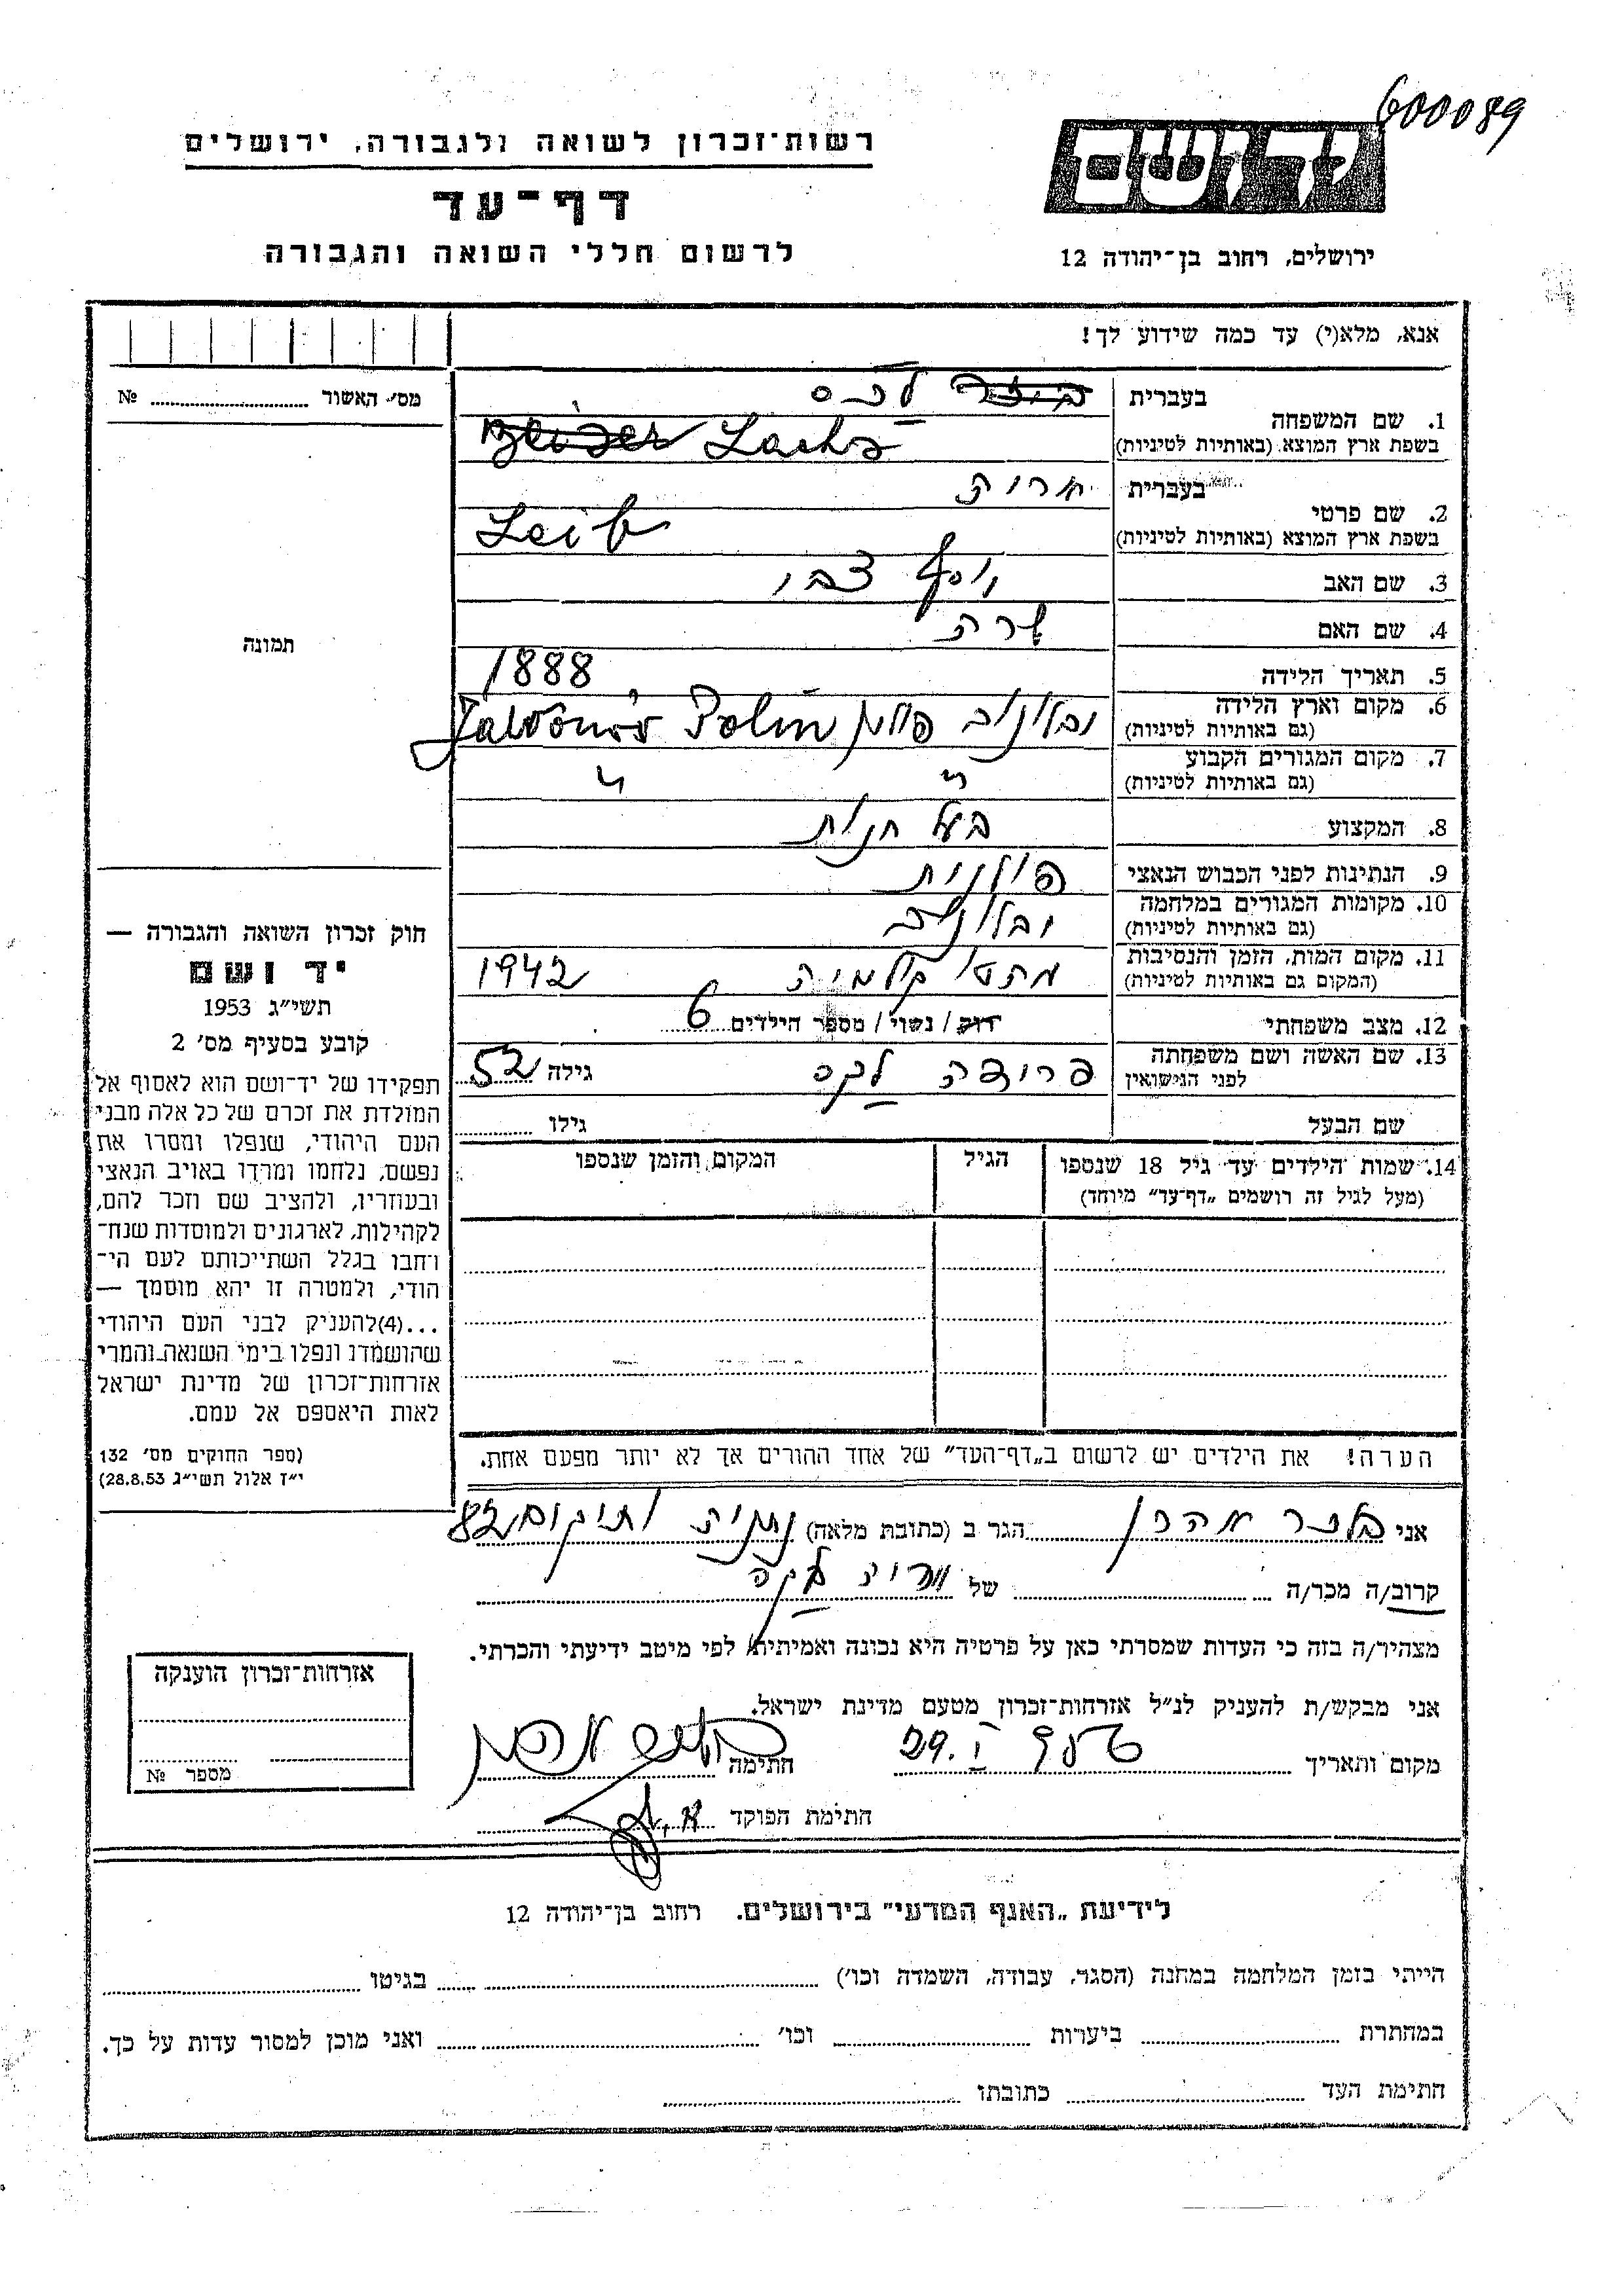 600089
יד ושם
רשות־זכרון לשואה ולגבורה, ירושלים
דף־עד
לרשום חללי השואה והגבורה
ירושלים, רחוב בן־יהודה 12
אנא, מלא(י) עד כמה שידוע לך!
מס׳ האשור № 
1. שם המשפחה
בעברית לכס
בשפת ארץ המוצא (באותיות לטיניות) Lachs
2. שם פרטי
בעברית אריה
בשפת ארץ המוצא (באותיות לטיניות) Leib
3. שם האב יוסף צבי
4. שם האם שרה
5. תאריך הלידה 1888
6. מקום וארץ הלידה
(גם באותיות לטיניות) יבלונוב פולין Polin
7. מקום המגורים הקבוע
(גם באותיות לטיניות) " "
8. המקצוע בעל חנות
9. הנתינות לפני הכבוש הנאצי פולנית
10. מקומות המגורים במלחמה
(גם באותיות לטיניות) יבלונוב
11. מקום המות, הזמן והנסיבות
(המקום גם באותיות לטיניות) 1942
12. מצב משפחתי רווק / נשוי / מספר הילדים 6
13. שם האשה ושם משפחתה
לפני הנישואין לקס גילה 52
שם הבעל גילו
14. שמות הילדים עד גיל 18 שנספו
(מעל לגיל זה רושמים „דף־עד” מיוחד)
הגיל
המקום והזמן שנספו
הערה! את הילדים יש לרשום ב„דף־העד” של אחד ההורים אך לא יותר מפעם אחת.
תמונה
חוק זכרון השואה והגבורה —
יד ושם
תשי״ג 1953
קובע בסעיף מס׳ 2
תפקידו של יד־ושם הוא לאסוף אל
המולדת את זכרם של כל אלה מבני
העם היהודי, שנפלו ומסרו את
נפשם, נלחמו ומרדו באויב הנאצי
ובעוזריו, ולהציב שם וזכר להם,
לקהילות, לארגונים ולמוסדות שנח־
רחבו בגלל השתייכותם לעם הי־
הודי, ולמטרה זו יהא מוסמך —
...(4)להעניק לבני העם היהודי
שהושמדו ונפלו בימי השואה והמרי
אזרחות־זכרון של מדינת ישראל
לאות היאספם אל עמם.
(ספר החוקים מס׳ 132
י״ז אלול תשי״ג 28.8.53)
אני אהרן הגר ב (כתובת מלאה) נתניה 82
קרוב/ה מכר/ה של אריה
מצהיר/ה בזה כי העדות שמסרתי כאן על פרטיה היא נכונה ואמיתית, לפי מיטב ידיעתי והכרתי.
אני מבקש/ת להעניק לנ״ל אזרחות־זכרון מטעם מדינת ישראל.
מקום ותאריך 29. I חתימה
חתימת הפוקד
אזרחות־זכרון הוענקה
מספר №
לידיעת „האגף המדעי” בירושלים. רחוב בן־יהודה 12
הייתי בזמן המלחמה במחנה (הסגר, עבודה, השמדה וכו׳) בגיטו
במחתרת ביערות וכו׳ ואני מוכן למסור עדות על כך.
חתימת העד כתובתו